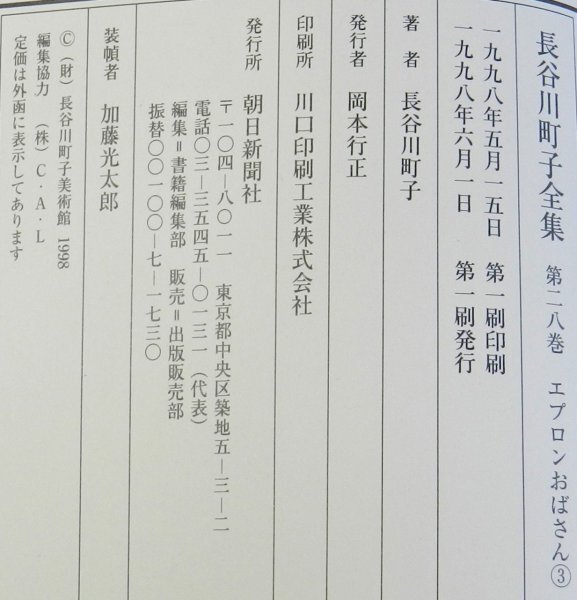 長谷川町子全集 第二八巻 エプロンおばさん③
一九九八年五月一五日 第一刷印刷
一九九八年六月一日 第一刷発行
著者 長谷川町子
発行者 岡本行正
印刷所 川口印刷工業株式会社
発行所 朝日新聞社
〒一〇四―八〇一一 東京都中央区築地五―三―二
電話〇三―三五四五―〇一三一(代表)
編集=書籍編集部 販売=出版販売部
振替〇〇一〇〇―七―一七三〇
装幀者 加藤光太郎
©(財)長谷川町子美術館 1998
編集協力 (株)C・A・L
定価は外函に表示してあります